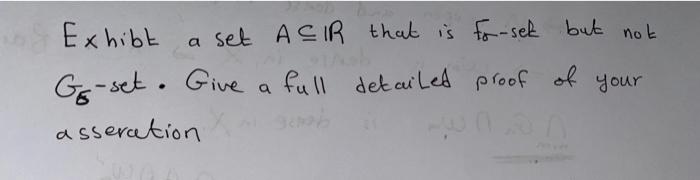 Exhibt a set A ⊆ ℝ that is Fσ-set but not
Gδ-set. Give a full detailed proof of your
asseration